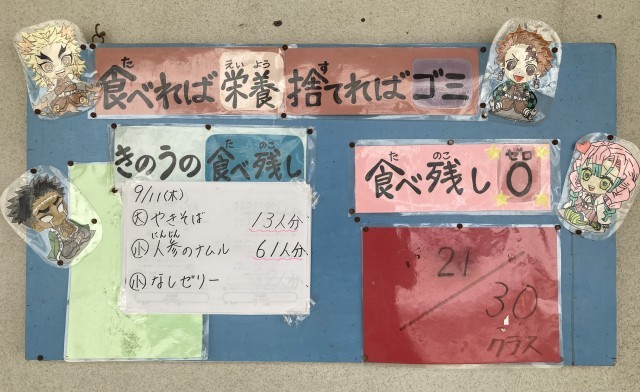 食べれば栄養 捨てればゴミ
た えい よう す
きのうの食べ残し
た のこ
9/11(木)
大 やきそば 13人分
小 人参のナムル 61人分
にんじん
小 なしゼリー
食べ残し0
た のこ ゼロ
21/30
クラス